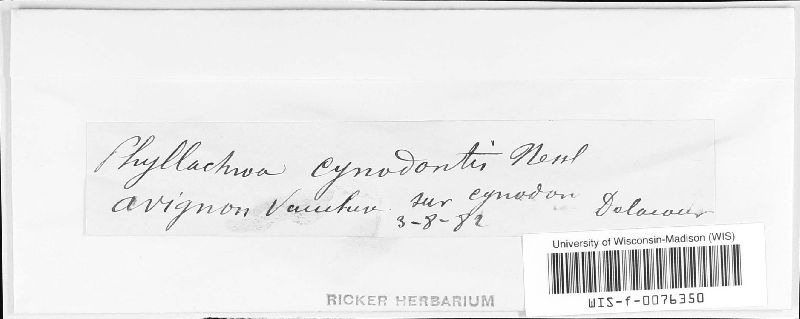 Phyllachora cynodontis Nessl
Avignon Vaucluse sur cynodon Delacour
3-8-82
University of Wisconsin-Madison (WIS)
WIS-f-0076350
RICKER HERBARIUM